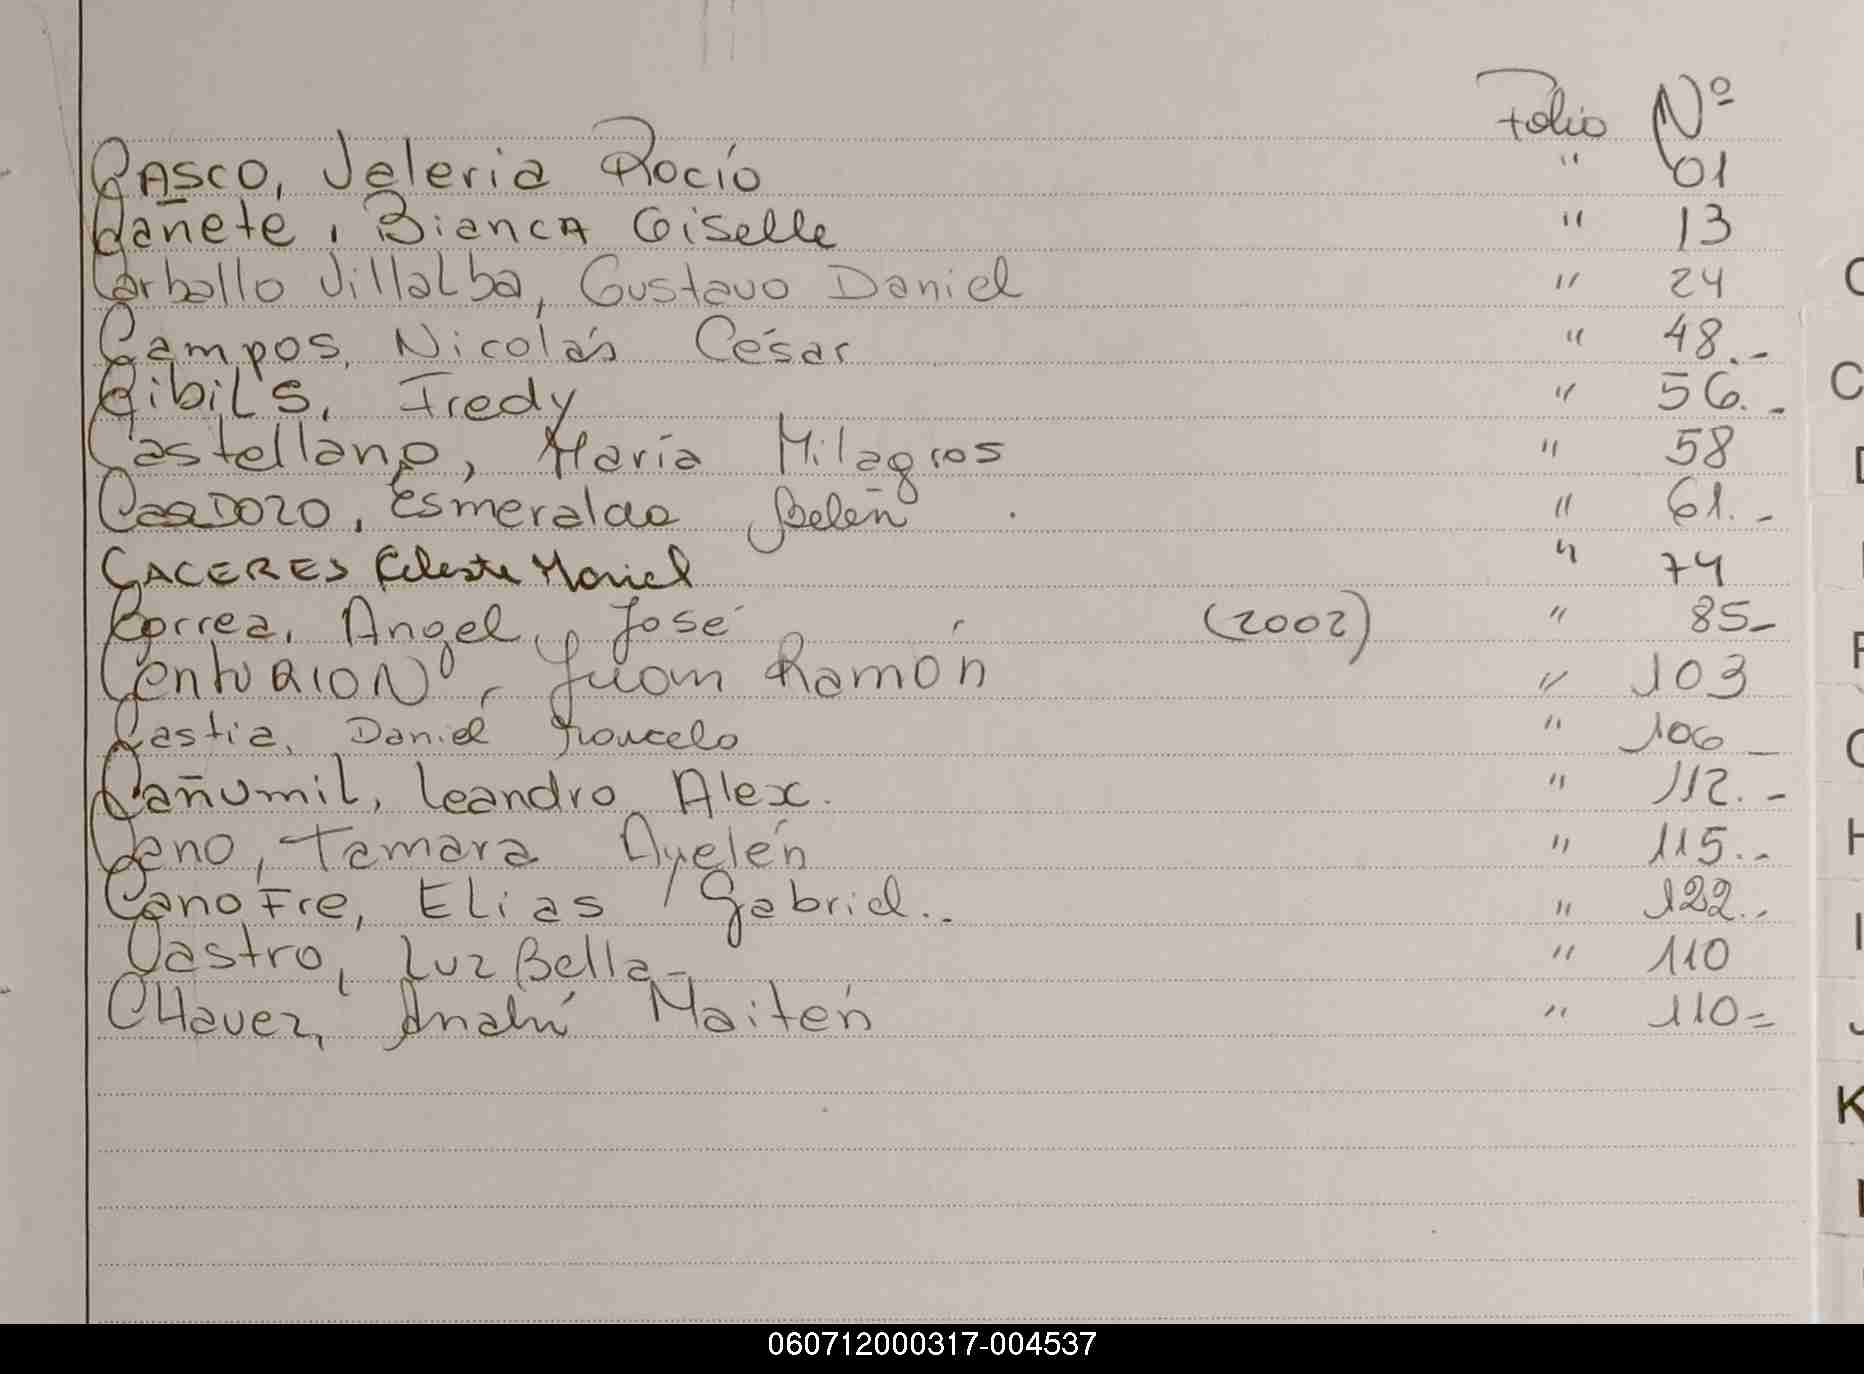 Folio Nº
CASCO, Valeria Rocío " 01
Cañete, Bianca Giselle " 13
Carballo Villalba, Gustavo Daniel " 24
Campos, Nicolás César " 48.-
Cibil's, Fredy " 56.-
Castellano, María Milagros " 58
CARDOZO, Esmeralda Belén . " 61.-
CACERES Celeste Mariel " 74
Correa, Angel José (2002) " 85-
CentuRION, Juan Ramón " 103
Castia, Daniel Marcelo " 106-
Cañumil, Leandro Alex. " 112.-
Cano, Tamara Ayelén " 115.-
Canofre, Elias Gabriel.. " 122.-
Castro, Luz Bella- " 110
CHavez, Anahí Maitén " 110=
C
C
D
F
G
H
I
J
K
060712000317-004537